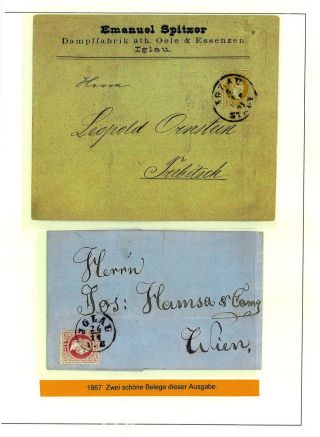 Emanuel Spitzer
Dampffabrik äth. Oele & Essenzen
Iglau.
Herrn
Leopold Ornstein
IGLAU
Herrn
Jos: Hamsa & Comp
Wien,
IGLAU
1867 Zwei schöne Belege dieser Ausgabe.